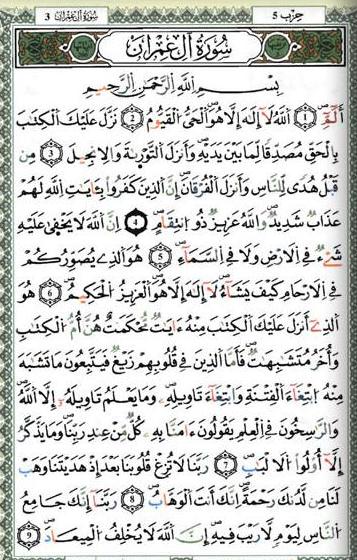 حزب 5
سورة آل عمران 3
سُورَةُ آلِ عِمْرَانَ
بِسْمِ اللَّهِ الرَّحْمَنِ الرَّحِيمِ
أَلَمِّ 1 اَللَّهُ لَا إِلَهَ إِلَّا هُوَ الْحَيُّ الْقَيُّومُ 2 نَزَّلَ عَلَيْكَ الْكِتَبَ
بِالْحَقِّ مُصَدِّقًا لِّمَا بَيْنَ يَدَيْهِ وَأَنزَلَ التَّوْرَيةَ وَالِانجِيلَ 3 مِن
قَبْلُ هُدًى لِّلنَّاسِ وَأَنزَلَ الْفُرْقَانَ إِنَّ الذِينَ كَفَرُواْ بِـَٔايَتِ اللَّهِ لَهُمْ
عَذَابٌ شَدِيدٌ وَاللَّهُ عَزِيزٌ ذُو انتِقَامٍ 4 إِنَّ اللَّهَ لَا يَخْفَى عَلَيْهِ
شَيْءٌ فِي الَارْضِ وَلَا فِي السَّمَاءِ 5 هُوَ الذِي يُصَوِّرُكُمْ
فِي الَارْحَامِ كَيْفَ يَشَاءُ لَا إِلَهَ إِلَّا هُوَ الْعَزِيزُ الْحَكِيمُ 6 هُوَ
الذِي أَنزَلَ عَلَيْكَ الْكِتَبَ مِنْهُ ءَايَتٌ مُّحْكَمَتٌ هُنَّ أُمُّ الْكِتَبِ
وَأُخَرُ مُتَشَبِهَتٌ فَأَمَّا الذِينَ فِي قُلُوبِهِمْ زَيْغٌ فَيَتَّبِعُونَ مَا تَشَبَهَ
مِنْهُ ابْتِغَاءَ الْفِتْنَةِ وَابْتِغَاءَ تَاوِيلِهِ وَمَا يَعْلَمُ تَاوِيلَهُ إِلَّا اللَّهُ
وَالرَّسِخُونَ فِي الْعِلْمِ يَقُولُونَ ءَامَنَّا بِهِ كُلٌّ مِّنْ عِندِ رَبِّنَا وَمَا يَذَّكَّرُ
إِلَّا أُوْلُواْ الَالْبَبِ 7 رَبَّنَا لَا تُزِغْ قُلُوبَنَا بَعْدَ إِذْ هَدَيْتَنَا وَهَبْ
لَنَا مِن لَّدُنكَ رَحْمَةً إِنَّكَ أَنتَ الْوَهَّابُ 8 رَبَّنَا إِنَّكَ جَامِعُ
النَّاسِ لِيَوْمٍ لَّا رَيْبَ فِيهِ إِنَّ اللَّهَ لَا يُخْلِفُ الْمِيعَادَ 9